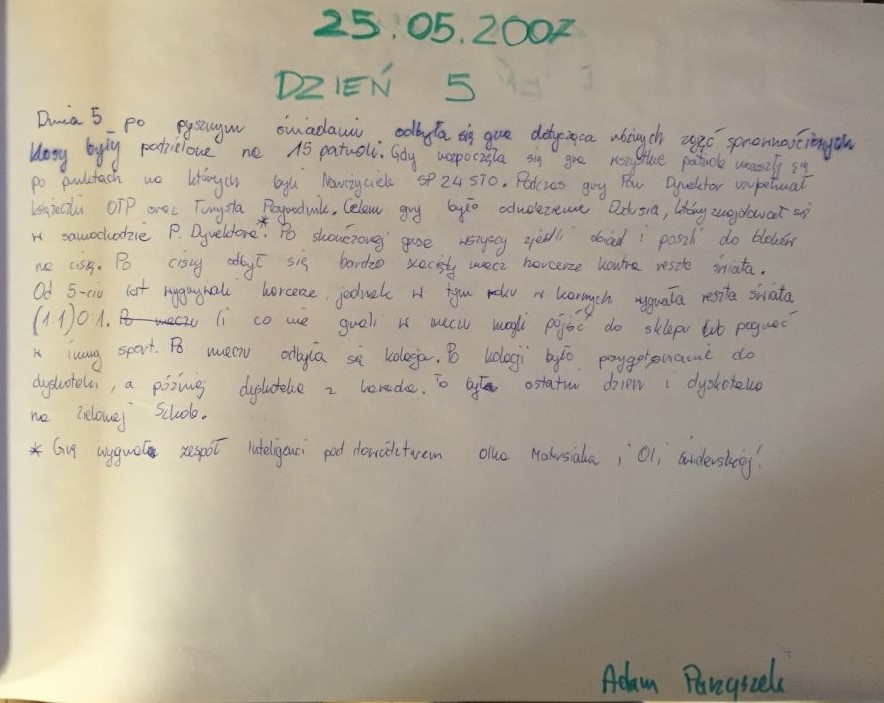 25.05.2007
DZIEŃ 5
Dnia 5 po pysznym śniadaniu odbyła się gra dotycząca różnych zajęć sprawnościowych
klasy były podzielone na 15 patroli. Gdy rozpoczęła się gra wszystkie patrole ruszyły się
po punktach na których byli Nauczyciele SP 24 STO. Podczas gry Pan Dyrektor uzupełniał
książeczki OTP oraz Turysta Przyrodnik. Celem gry było odnalezienie Dzidusia, który znajdował się
w samochodzie P. Dyrektora.* Po skończonej grze wszyscy zjedli obiad i poszli do bloków
na ciszę. Po ciszy odbył się bardzo zacięty mecz harcerze kontra reszta świata.
Od 5-ciu lat wygrywali harcerze, jednak w tym roku w karnych wygrała reszta świata
(1:1) 0:1. Po meczu Ci co nie grali w meczu mogli pójść do sklepu lub pograć
w inny sport. Po meczu odbyła się kolacja. Po kolacji było przygotowanie do
dyskoteki, a później dyskoteka z karaoke. To był ostatni dzień i dyskoteka
na Zielonej Szkole.
* Grę wygrała zespół Inteligenci pod dowództwem Olka Matusiaka i Oli Świderskiej!
Adam Parzyszek